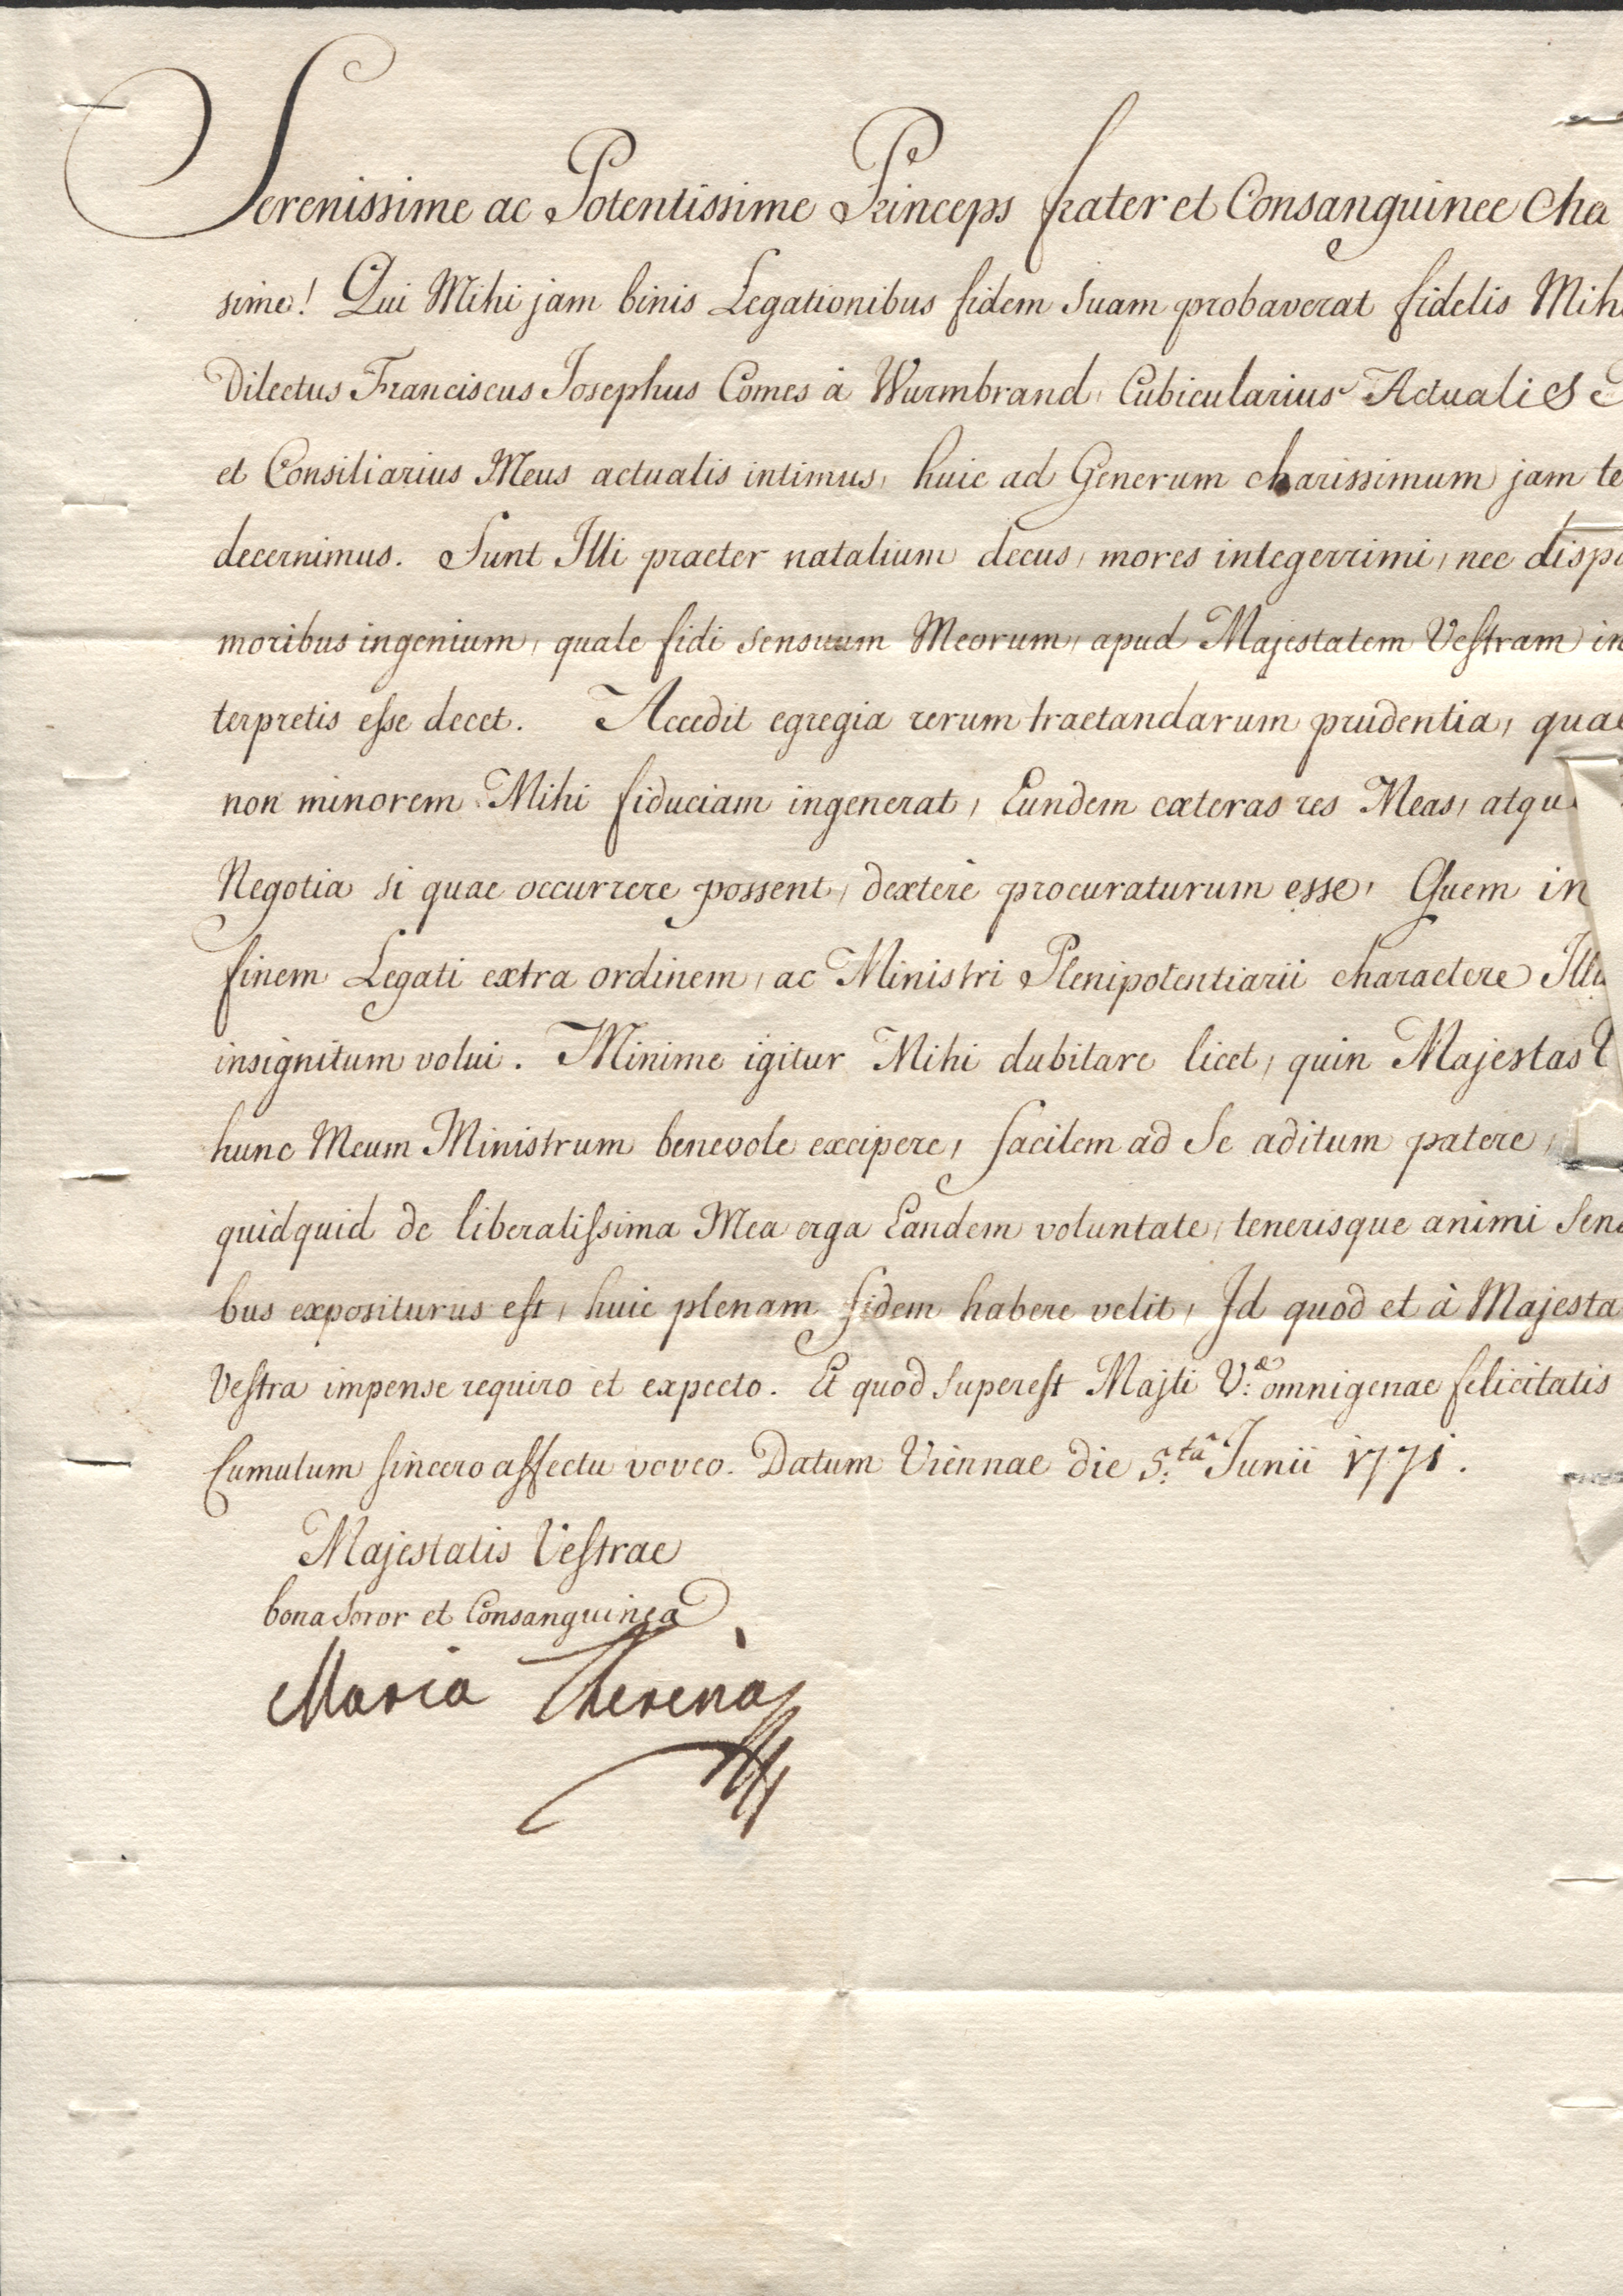 Serenissime ac Potentissime Princeps frater et Consanguinee Cha
sime! Qui Mihi jam binis Legationibus fidem Suam probaverat fidelis Mihi
Dilectus Franciscus Josephus Comes à Wurmbrand, Cubicularius Actualis
et Consiliarius Meus actualis intimus, huic ad Generum charissimum jam te
decernimus. Sunt Illi praeter natalium decus, mores integerrimi, nec dispa
moribus ingenium, quale fidi Sensuum Meorum, apud Majestatem Vestram in
terpretis esse decet. Accedit egregia rerum tractandarum prudentia, quae
non minorem Mihi fiduciam ingenerat, Eundem caeteras res Meas, atqu
Negotia si quae occurrere possent, dextere procuraturum esse, Quem in
finem Legati extra ordinem, ac Ministri Plenipotentiarii charactere Illu
insignitum volui. Minime igitur Mihi dubitare licet, quin Majestas V
hunc Meum Ministrum benevole excipere, facilem ad Se aditum patere,
quidquid de liberalissima Mea erga Eandem voluntate, tenerisque animi Sens
bus expositurus est, huic plenam fidem habere velit, Id quod et à Majesta
Vestra impense requiro et expecto. Et quod Superest Majti V.ae omnigenae felicitatis
Cumulum sincero affectu voveo. Datum Viennae die 5.ta Junii 1771.
Majestatis Vestrae
bona Soror et Consanguinea
Maria Theresia